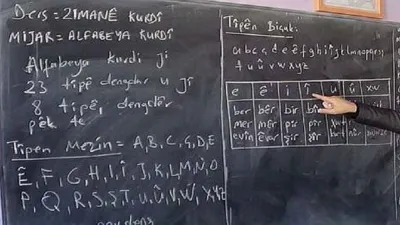 Ders = ZIMANÊ KURDÎ
MIJAR = ALFABEYA KURDÎ
Alfabeya kurdî ji
23 tîpê dengdar u ji
8 tîpê, dengdêr
pêk tê
Tîpên Mezin = A, B, C, Ç, D, E
Ê, F, G, H, I, Î, J, K, L, M, N, O
P, Q, R, S, Ş, T, U, Û, V, W, X, Y, Z
Tîpên Biçûk:
a b c ç d e ê f g h i î j k l m n o p q r s ş
t u û v w x y z
e ê i î u û xw
ber bêr bir
mer mêr pir pîr
evîn êvar şîr